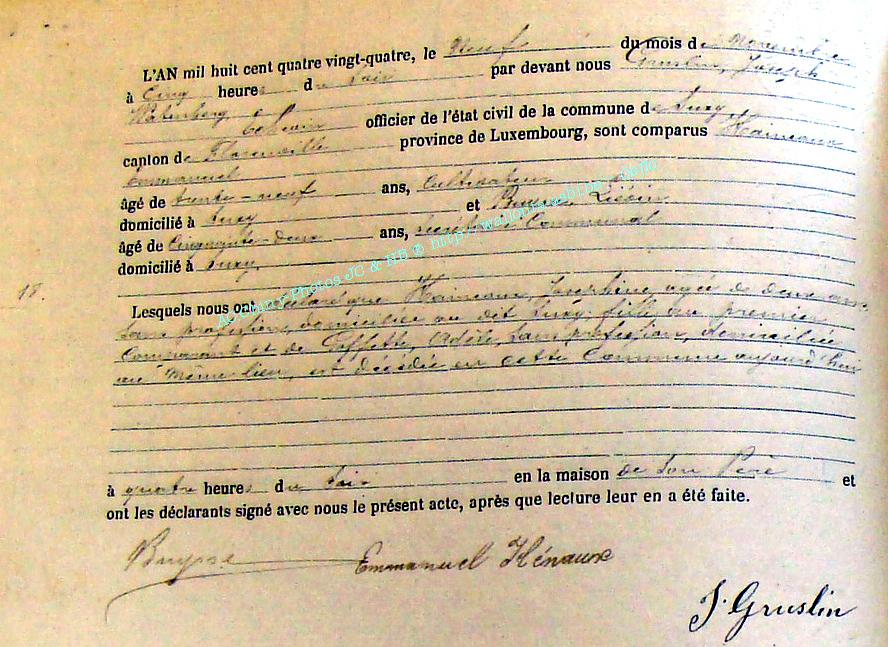 L'AN mil huit cent quatre vingt-quatre, le Neuf du mois de Novembre
à Cinq heures du Soir par devant nous Gruslin, Joseph
officier de l'état civil de la commune de Suxy
canton de Florenville province de Luxembourg, sont comparus Hainaux
Emmanuel
âgé de trente-neuf ans, Cultivateur
domicilié à Suxy et Buysse
âgé de Cinquante-deux ans, Secrétaire Communal
domicilié à Suxy.
18.
Lesquels nous ont déclaré que Hainaux, agée de deux ans
Sans profession, domiciliée au dit Suxy, fille du premier
Comparant et de Goffette, Adèle, Sans profession, domiciliée
au même lieu, est décédée en cette Commune aujourd'hui
à quatre heures du Soir en la maison de Son Père et
ont les déclarants signé avec nous le présent acte, après que lecture leur en a été faite.
Buysse Emmanuel Hénaux
J. Gruslin
Photos JC & NB © http://